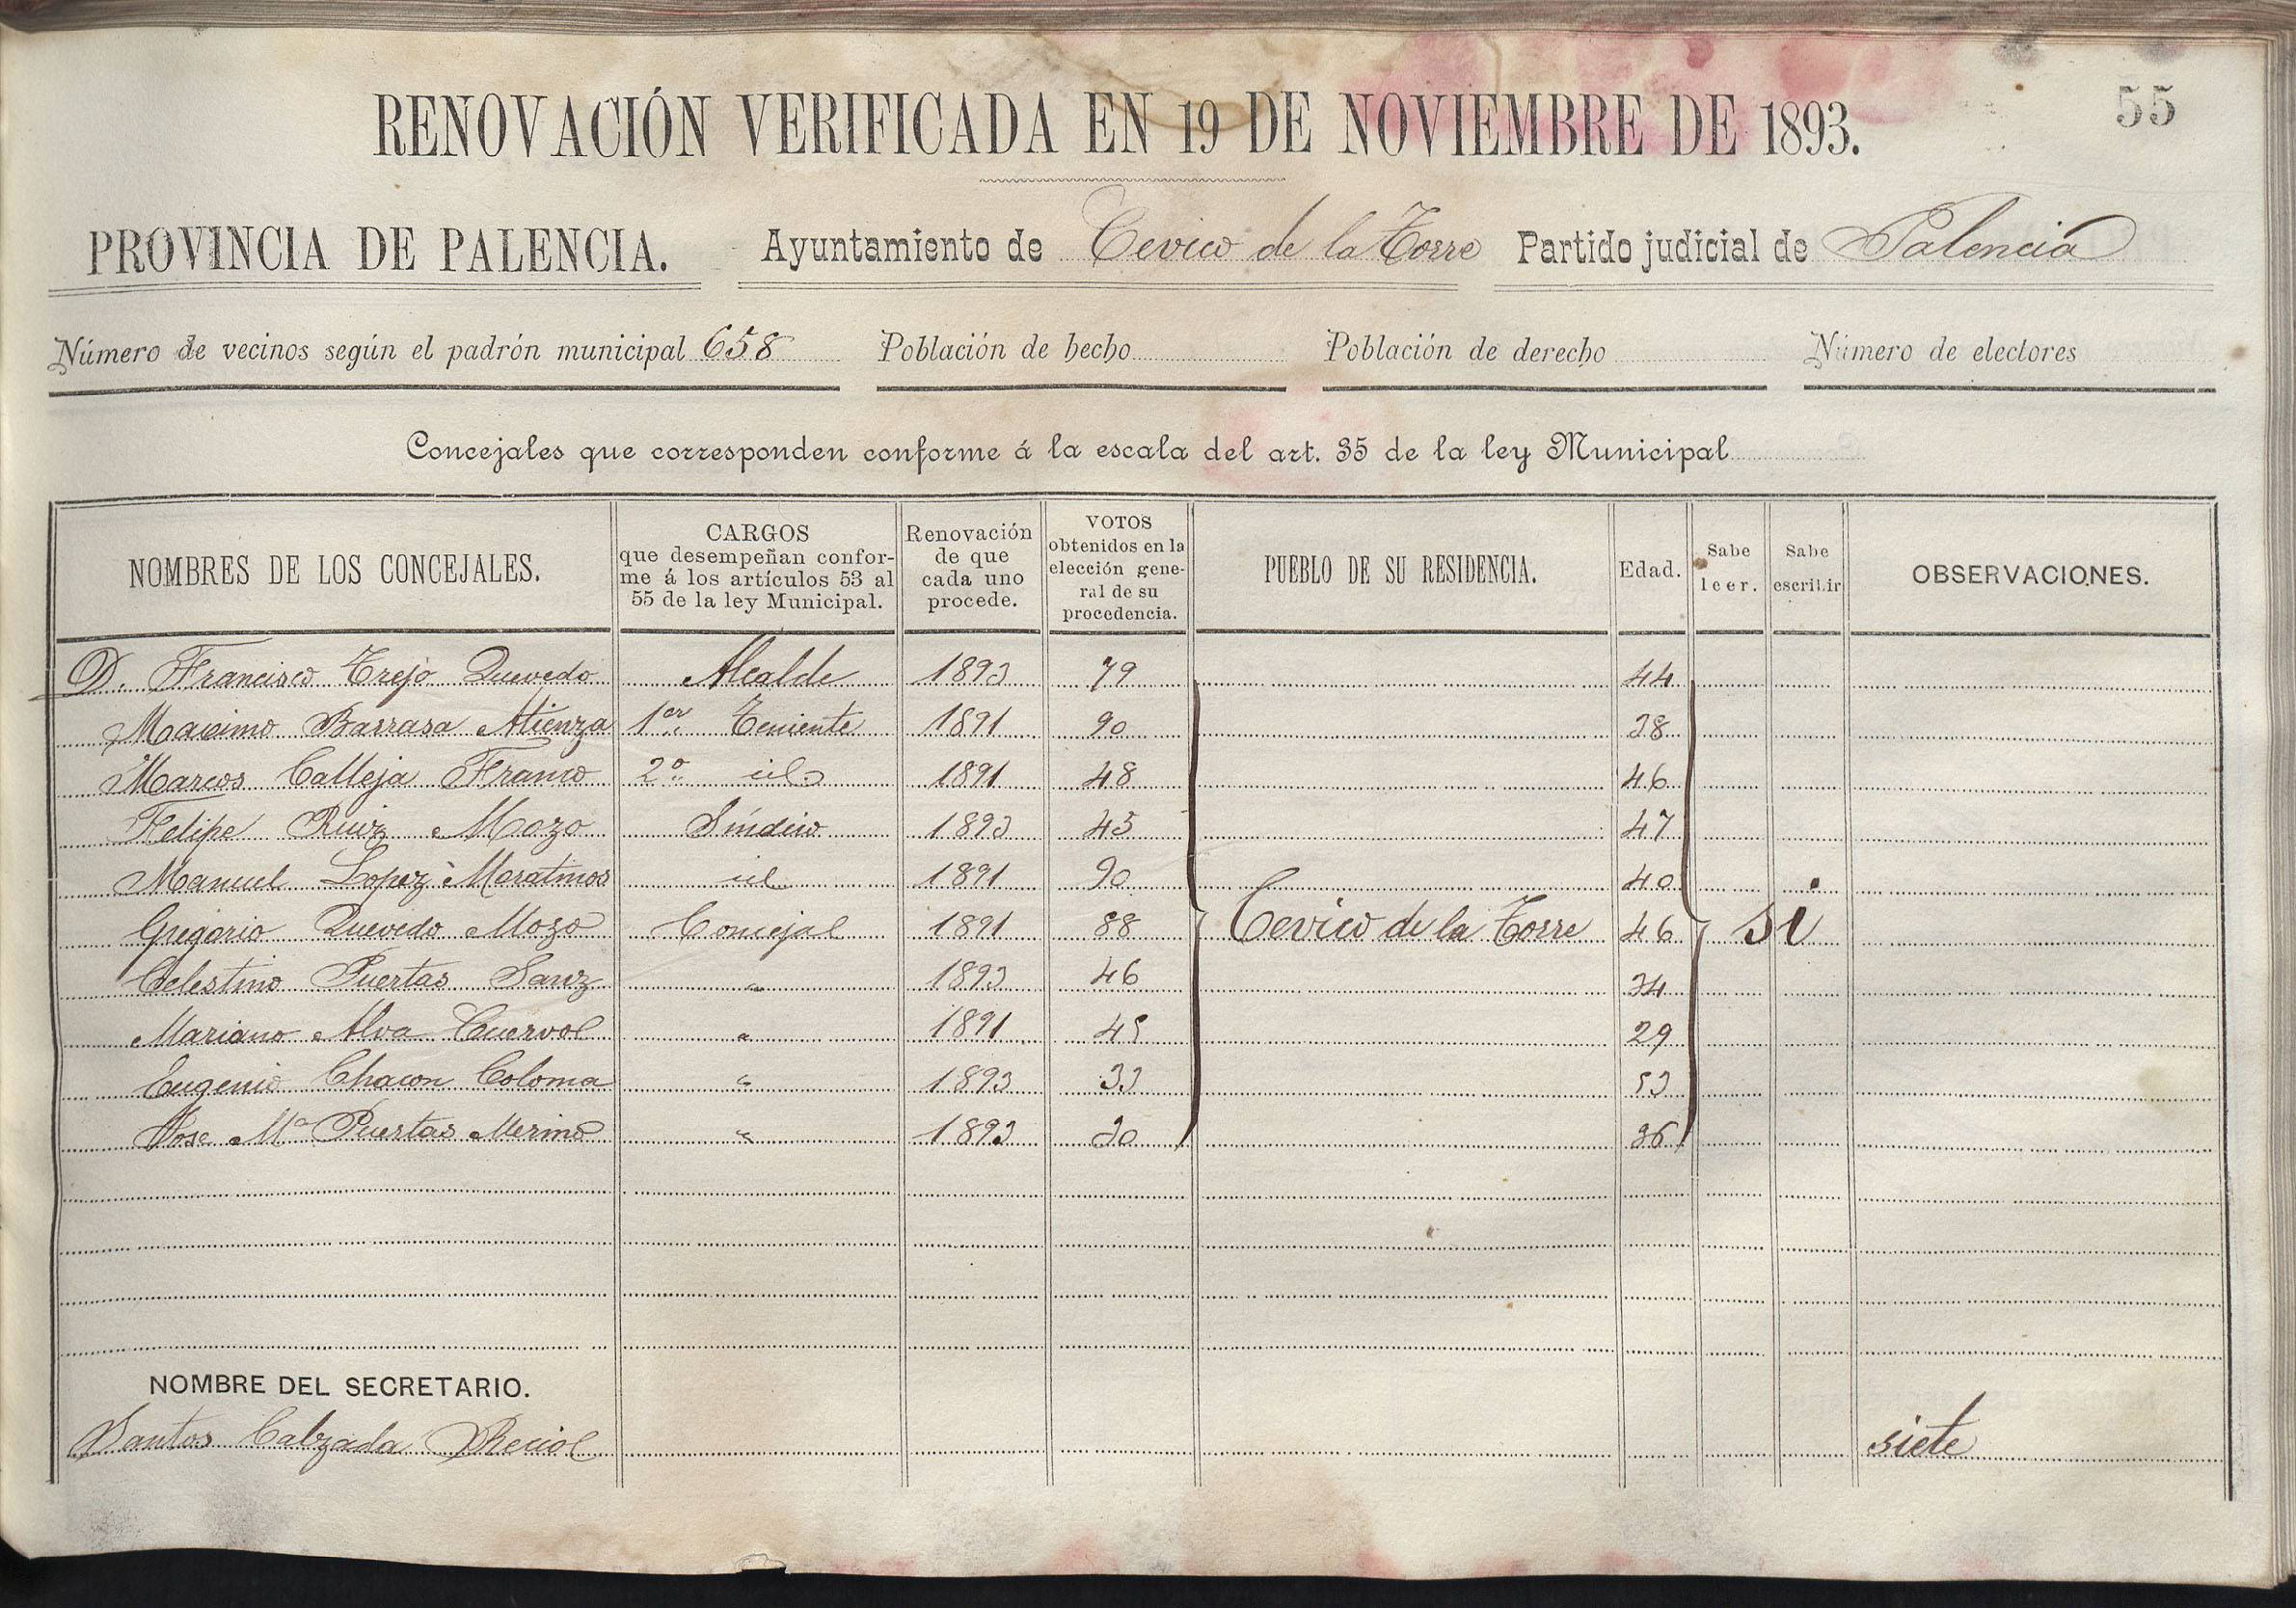 55
RENOVACIÓN VERIFICADA EN 19 DE NOVIEMBRE DE 1893.
PROVINCIA DE PALENCIA. Ayuntamiento de Cevico de la Torre Partido judicial de Palencia
Número de vecinos según el padrón municipal 658 Población de hecho Población de derecho Número de electores
Concejales que corresponden conforme á la escala del art. 35 de la ley Municipal
NOMBRES DE LOS CONCEJALES. CARGOS que desempeñan conforme á los artículos 53 al 55 de la ley Municipal. Renovación de que cada uno procede. VOTOS obtenidos en la elección general de su procedencia. PUEBLO DE SU RESIDENCIA. Edad. Sabe leer. Sabe escribir OBSERVACIONES.
D. Francisco Trejo Quevedo Alcalde 1893 79 44
Macsimo Barrasa Atienza 1er Teniente 1891 90 38
Marcos Calleja Franco 2º id 1891 48 46
Felipe Ruiz Mozo Síndico 1893 43 47
Manuel Lopez Moratinos id 1891 90 40
Gregorio Quevedo Mozo Concejal 1891 88 Cevico de la Torre 46 si
Celestino Puertas Sanz " 1893 46 34
Mariano Alva Cuervol " 1891 45 29
Eugenio Chacon Coloma " 1893 33 53
Jose Mª Puertas Merino " 1893 30 36
NOMBRE DEL SECRETARIO.
Santos Calzada Reciol siete